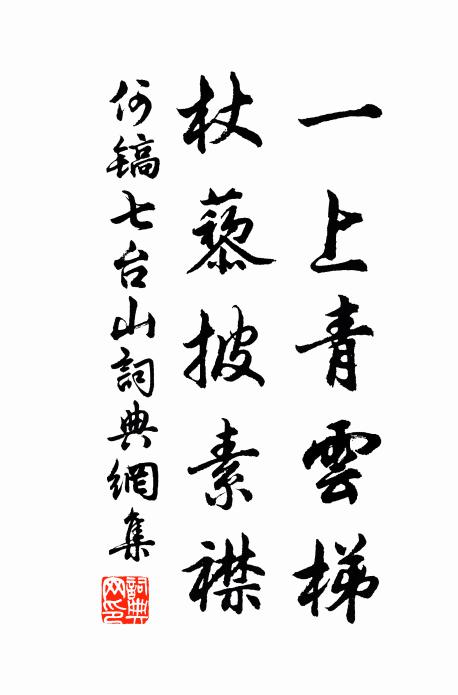 一上青雲梯
杖藜披素襟
何镐七台山詞典網集
詞典網印